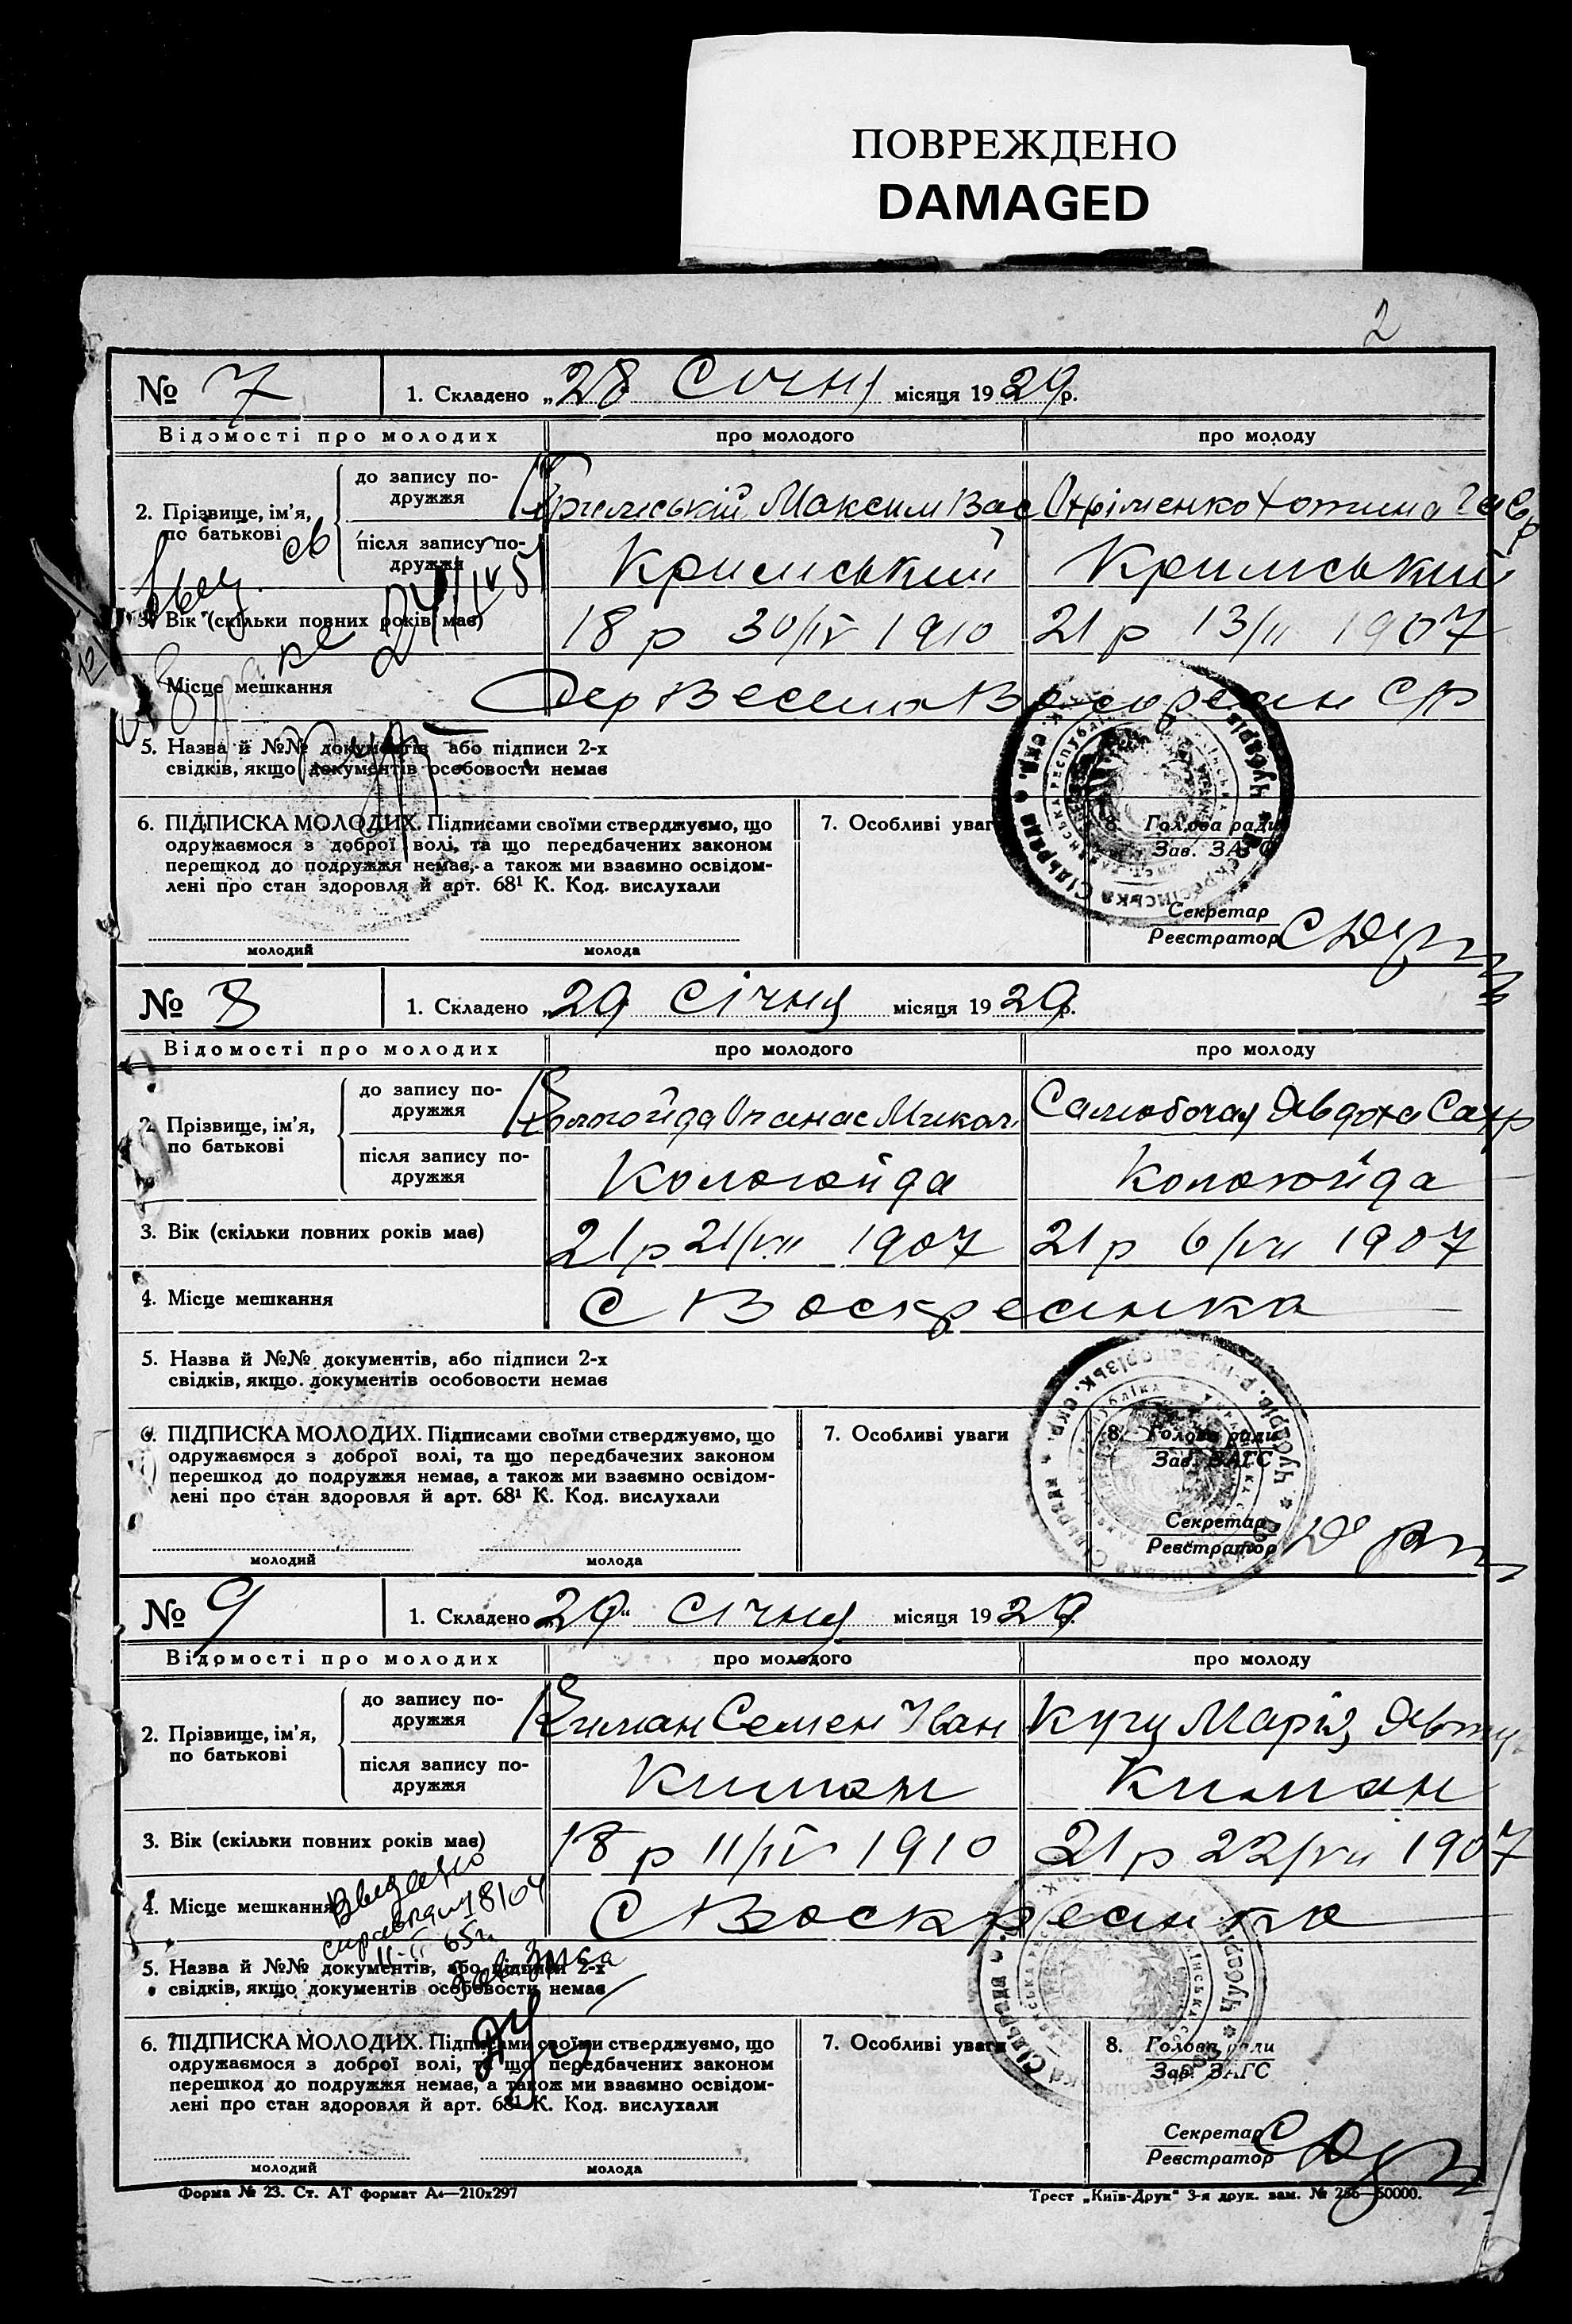 ПОВРЕЖДЕНО
DAMAGED
2
№ 7 1. Складено „28" Січня місяця 1929 р.
Відомості про молодих про молодого про молоду
2. Прізвище, ім'я, по батькові
до запису по-
дружжя
Кримський Максим Вас Охріменко Хотина Гавр
після запису по-
дружжя
Кримський Кримський
3. Вік (скільки повних років має) 18 р 30/IV 1910 21 р 13/II 1907
4. Місце мешкання
5. Назва й №№ документів або підписи 2-х
свідків, якщо документів особовости немає
6. ПІДПИСКА МОЛОДИХ. Підписами своїми стверджуємо, що
одружаємося з доброї волі, та що передбачених законом
перешкод до подружжя немає, а також ми взаємно освідом-
лені про стан здоровля й арт. 68¹ К. Код. вислухали
молодий молода
7. Особливі уваги
8. Голова ради
Зав. ЗАГС
Секретар
Реєстратор
№ 8 1. Складено „29" січня місяця 1929 р.
Відомості про молодих про молодого про молоду
2. Прізвище, ім'я,
по батькові
до запису по-
дружжя
Кологойда Опанас Микол Явдоха
після запису по-
дружжя
Кологойда Кологойда
3. Вік (скільки повних років має) 21 р 21/VII 1907 21 р 6/VII 1907
4. Місце мешкання С Воскресинка
5. Назва й №№ документів, або підписи 2-х
свідків, якщо документів особовости немає
6. ПІДПИСКА МОЛОДИХ. Підписами своїми стверджуємо, що
одружаємося з доброї волі, та що передбачених законом
перешкод до подружжя немає, а також ми взаємно освідом-
лені про стан здоровля й арт. 68¹ К. Код. вислухали
молодий молода
7. Особливі уваги
8. Голова ради
Зав. ЗАГС
Секретар
Реєстратор
№ 9 1. Складено „29" січня місяця 1929 р.
Відомості про молодих про молодого про молоду
2. Прізвище, ім'я,
по батькові
до запису по-
дружжя
Киман Семен Іван Марія
після запису по-
дружжя
Киман Киман
3. Вік (скільки повних років має) 18 р 11/IV 1910 21 р 22/VII 1907
4. Місце мешкання С Воскресинка
5. Назва й №№ документів, або підписи 2-х
свідків, якщо документів особовости немає
6. ПІДПИСКА МОЛОДИХ. Підписами своїми стверджуємо, що
одружаємося з доброї волі, та що передбачених законом
перешкод до подружжя немає, а також ми взаємно освідом-
лені про стан здоровля й арт. 68¹ К. Код. вислухали
молодий молода
7. Особливі уваги
8. Голова ради
Зав. ЗАГС
Секретар
Реєстратор
Форма № 23. Ст. АТ формат А4—210х297 Трест „Київ-Друк" 3-я друк. зам. № 256—50000.